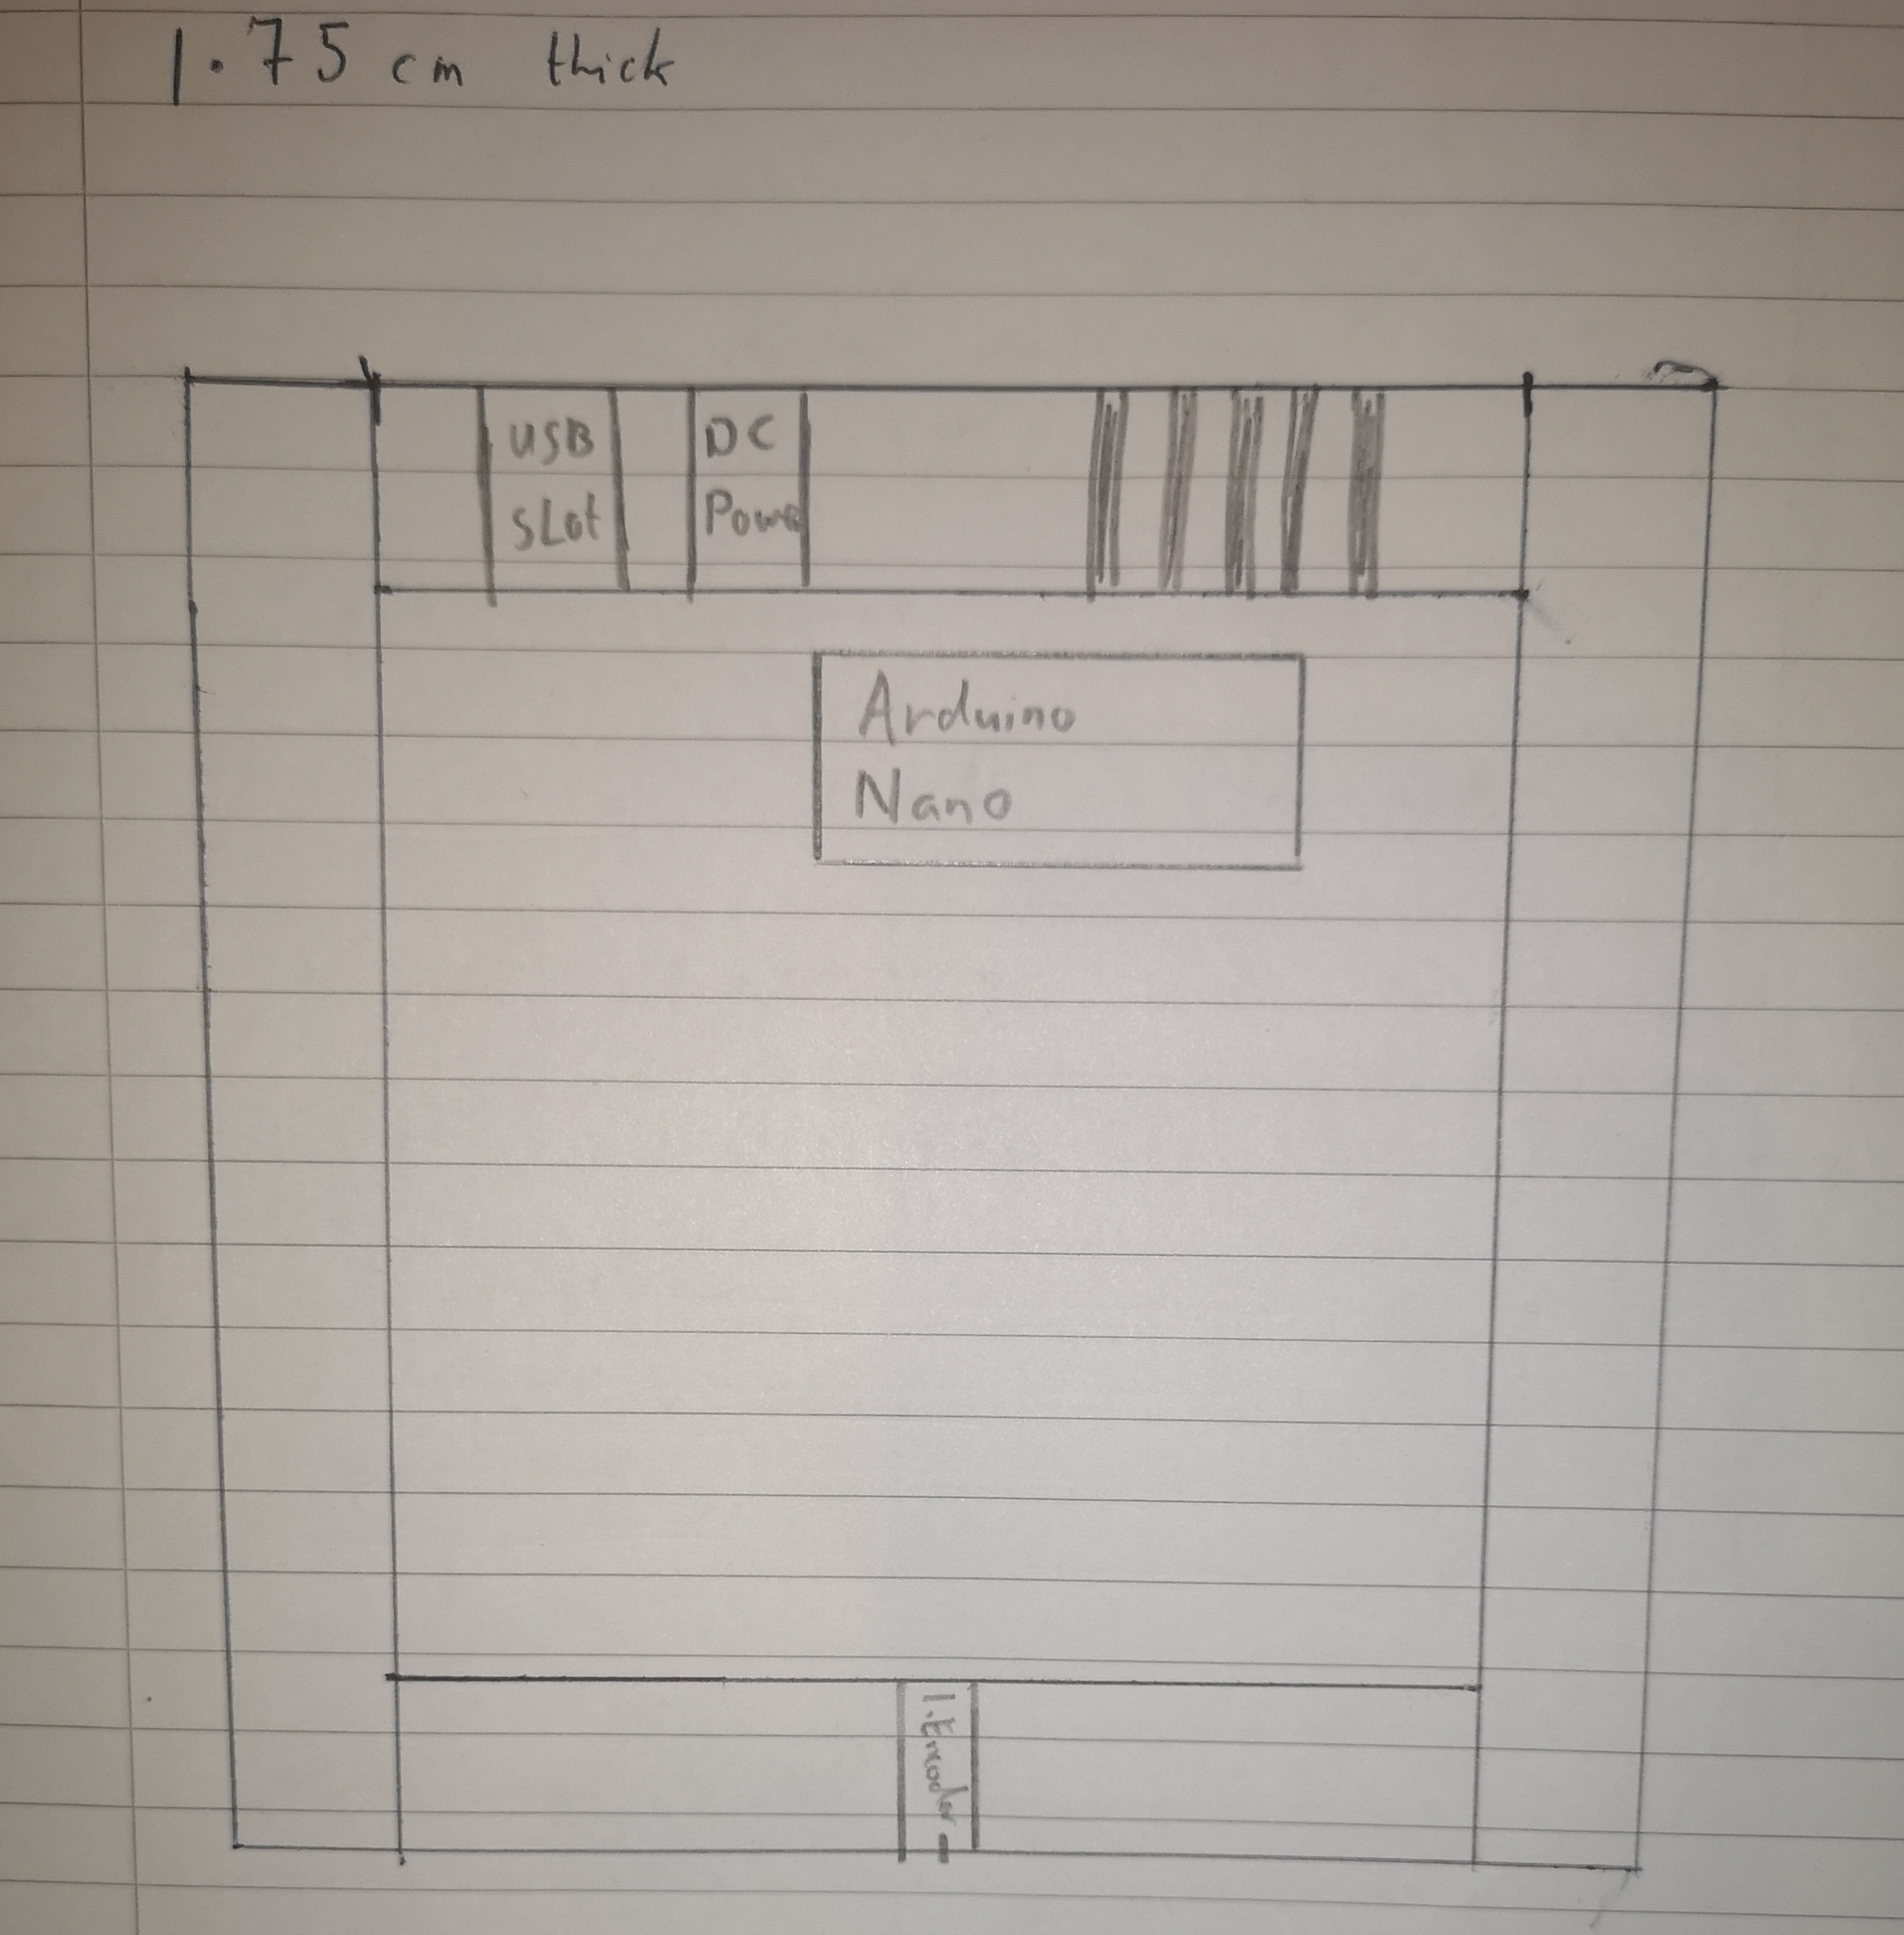 1.75 cm thick
USB
SLot
DC
Power
Arduino
Nano
1.Encoder